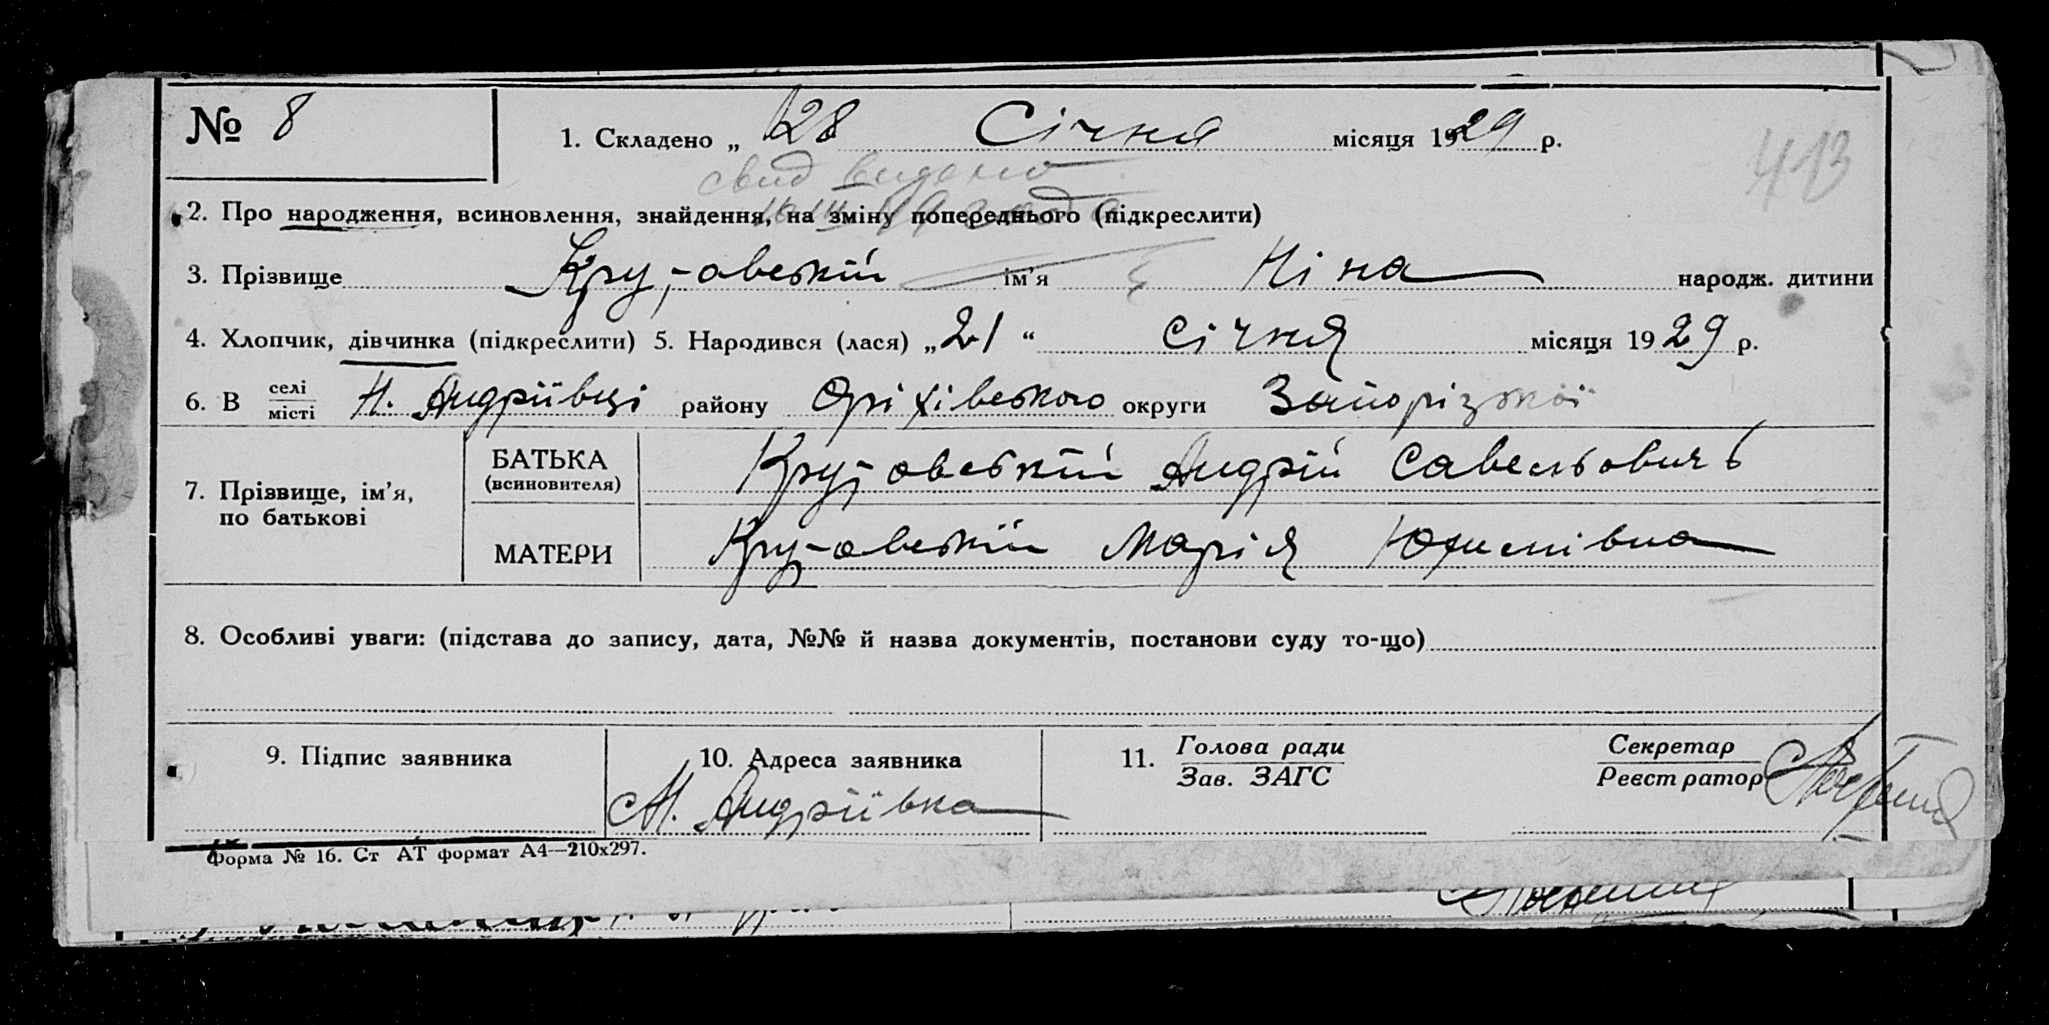 № 8
1. Складено „ 28 Січня місяця 1929 р.
413
свид видано
2. Про народження, всиновлення, знайдення, на зміну попереднього (підкреслити)
3. Прізвище ім’я Ніна народж. дитини
4. Хлопчик, дівчинка (підкреслити) 5. Народився (лася) „21“ січня місяця 1929 р.
6. В селі місті Н. Андріївці району Оріхівського округи Запорізької
7. Прізвище, ім’я, по батькові
БАТЬКА (всиновителя) Андрій Савельовичь
МАТЕРИ Марія Юхимівна
8. Особливі уваги: (підстава до запису, дата, №№ й назва документів, постанови суду то-що)
9. Підпис заявника
10. Адреса заявника
Н. Андріївка
11. Голова ради
Зав. ЗАГС
Секретар
Реєстратор
Форма № 16. Ст АТ формат А4—210х297.